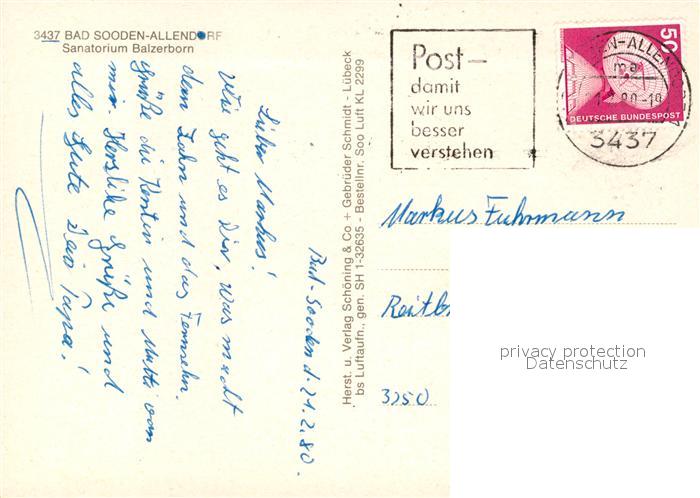 3437 BAD SOODEN-ALLENDORF
Sanatorium Balzerborn
Bad-Sooden d. 21.2.80.
Lieber Markus!
Wie geht es Dir, was macht
dein Zahn und das Fernsehn.
grüße die Kerstin und Mutti von
mir. Herzliche Grüße und
alles Gute Dein Papa!
Herst. u. Verlag Schöning & Co + Gebrüder Schmidt - Lübeck
bs Luftaufn., gen. SH 1-32635 - Bestellnr. Soo Luft KL 2299
Post-
damit
wir uns
besser
verstehen
50
DEUTSCHE BUNDESPOST
3437
Markus Fuhrmann
3250
privacy protection
Datenschutz